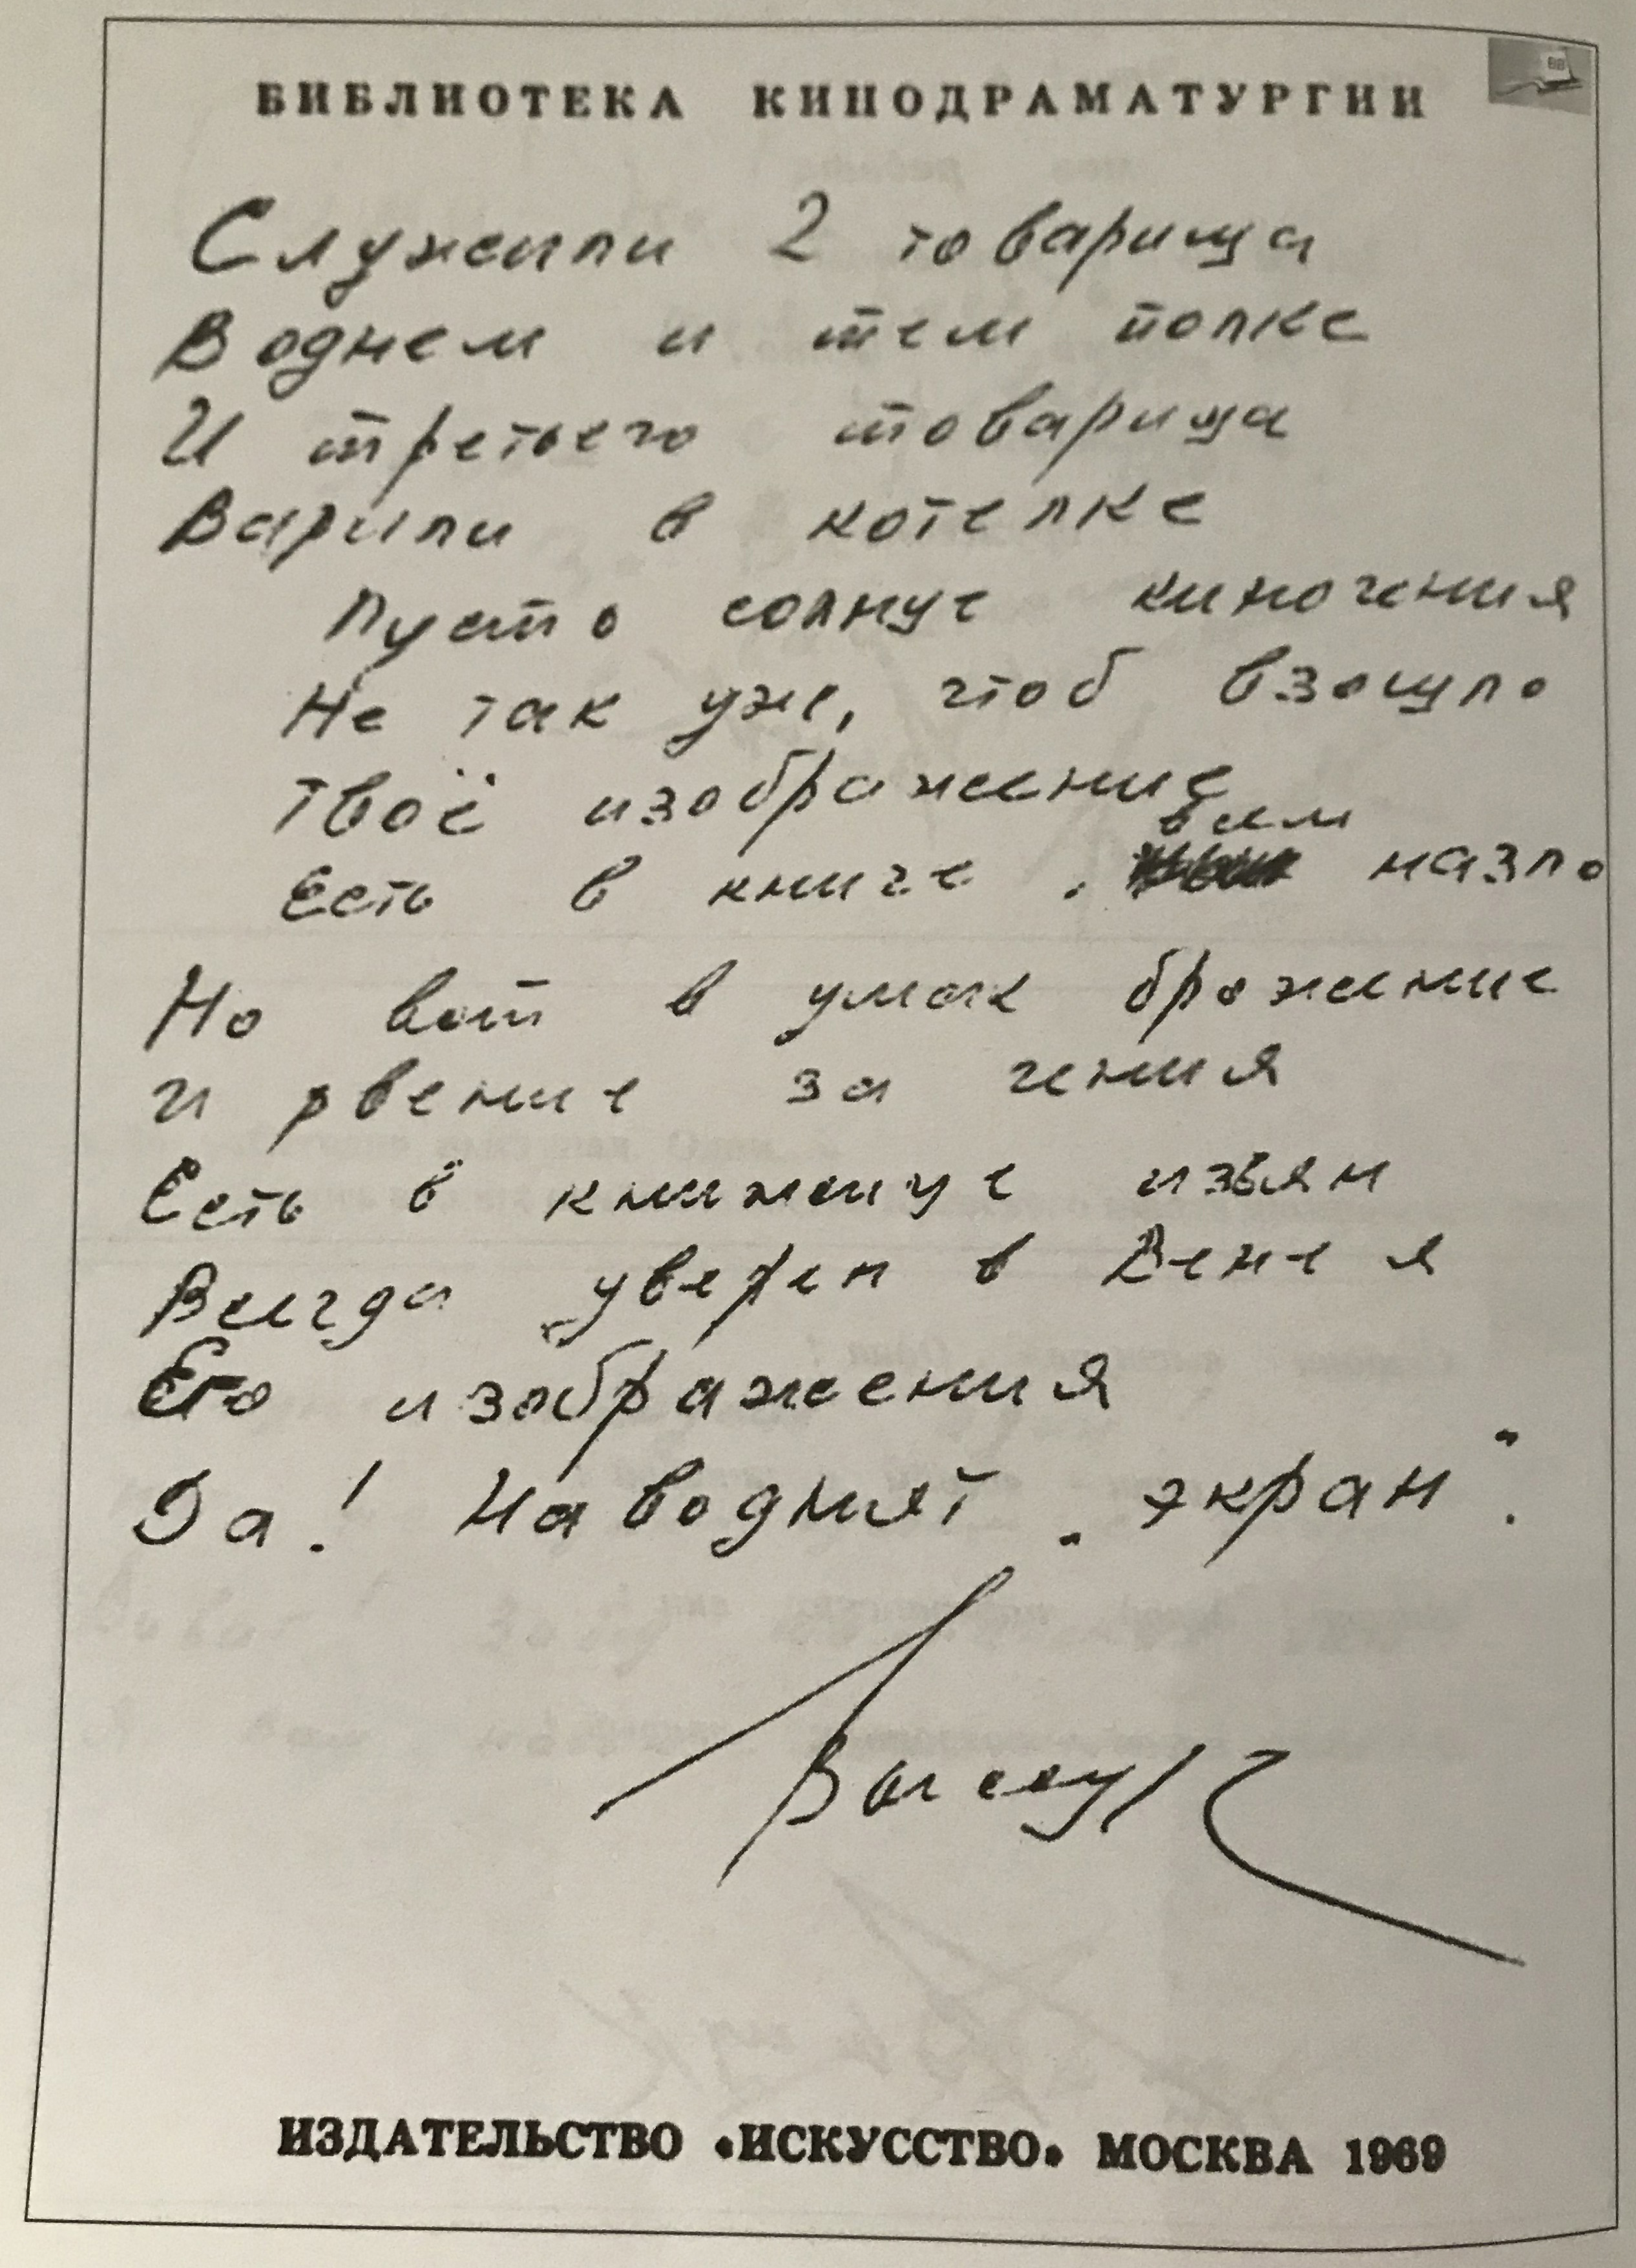 БИБЛИОТЕКА КИНОДРАМАТУРГИИ
Служили 2 товарища
В однем и тем полке
И третьего товарища
Варили в котелке
Пусть солнце киногения
Не так уже, чтоб взошло
Твоё изображение
всем
Есть в книге, назло
Но вот в умах брожение
и рвение за гения
Есть в книжице изъян
Всегда уверен в Вене я
Его изображения
Да! Наводнят „экран“.
ИЗДАТЕЛЬСТВО «ИСКУССТВО» МОСКВА 1969